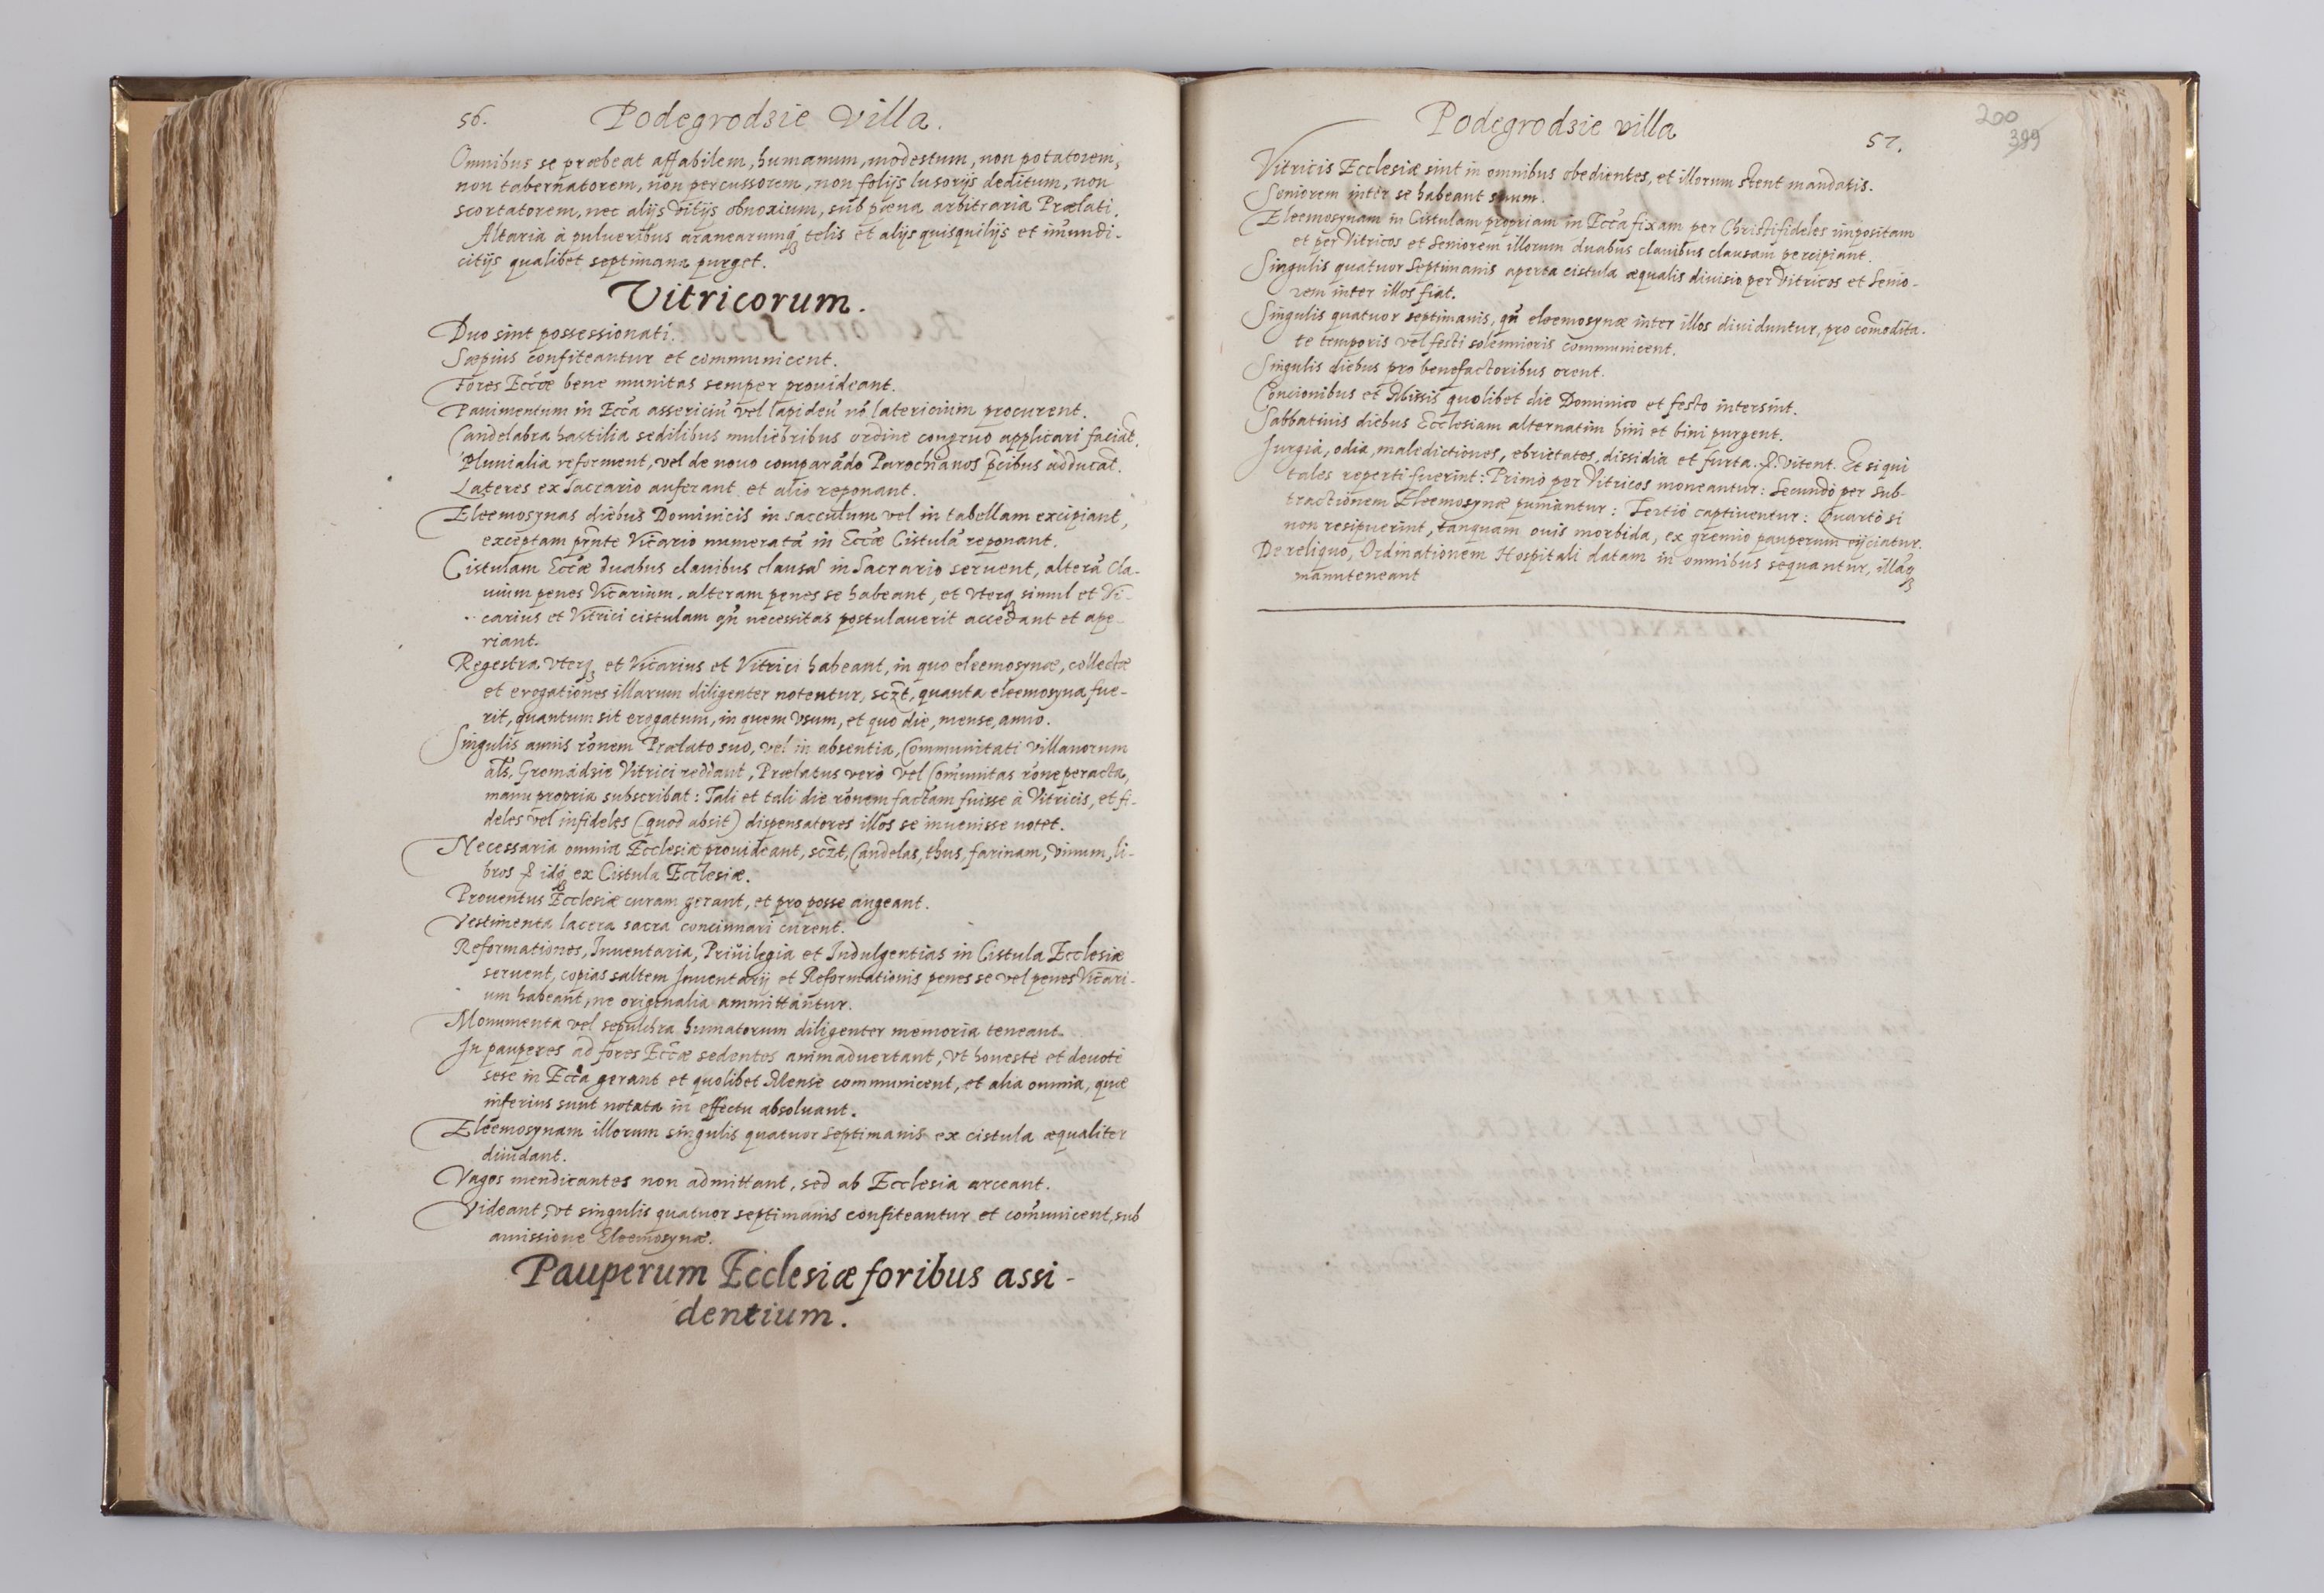 56. Podegrodzie villa.
Omnibus se præbeat affabilem, humanum, modestum, non potatorem,
non tabernatorem, non percussorem, non folijs lusorijs deditum, non
scortatorem, nec alijs vitijs obnoxium, sub pæna arbitraria Prælati.
Altaria à pulueribus aranearumq́ telis et alijs quisquilijs et im̃undi-
citijs qualibet septimana purget.
Vitricorum.
Duo sint possessionati.
Sæpius confiteantur et communicent.
Fores Eccæ bene munitas semper prouideant.
Pauimentum in Ecc̃a assericiũ vel lapideũ nõ latericium procurent.
Candelabra hastilia sedilibus muliebribus ordine congruo applicari faciãt.
Pluuialia reforment, vel de nouo comparãdo Parochianos p̃cibus adducãt.
Lateres ex Sacrario auferant et alio reponant.
Eleemosynas diebus Dominicis in sacculum vel in tabellam excipiant,
exceptam prñte Vicario numeratã in Eccæ Cistulã reponant.
Cistulam Eccæ duabus clauibus clausã in Sacrario seruent, alterã cla-
uium penes Vicarium, alteram penes se habeant, et vterq simul et Vi-
carius et Vitrici cistulam qñ necessitas postulauerit accedant et ape-
riant.
Regestra vterq et Vicarius et Vitrici habeant, in quo eleemosynæ, collectæ
et erogationes illarum diligenter notentur, sczt, quanta eleemosyna fue-
rit, quantum sit erogatum, in quem vsum, et quo die, mense, anno.
Singulis annis rõnem Prælato suo, vel in absentia, Communitati villanorum
als̃, Gromadzie Vitrici reddant, Prælatus verò vel Com̃unitas rõne peracta,
manu propria subscribat: Tali et tali die rõnem factam fuisse à Vitricis, et fi-
deles vel infideles (quod absit) dispensatores illos se inuenisse notet.
Necessaria omnia Ecclesiæ prouideant, sczt, Candelas, thus, farinam, vinum, li-
bros & idq́ ex Cistula Ecclesiæ.
Prouentus Ecclesiæ curam gerant, et pro posse augeant.
Vestimenta lacera sacra concinnari curent.
Reformationes, Inuentaria, Priuilegia et Indulgentias in Cistula Ecclesiæ
seruent, copias saltem Inuentarij et Reformationis penes se vel penes Vicari-
um habeant, ne originalia ammittantur.
Monumenta vel sepulchra humatorum diligenter memoria teneant.
In pauperes ad fores Eccæ sedentes animaduertant, vt honestè et deuotè
sese in Ecc̃a gerant et quolibet Mense communicent, et alia omnia, quæ
inferius sunt notata in effectu absoluant.
Eleemosynam illorum singulis quatuor septimanis ex cistula æqualiter
diuidant.
Vagos mendicantes non admittant, sed ab Ecclesia arceant.
Videant, vt singulis quatuor septimanis confiteantur et com̃unicent, sub
amissione Eleemosynæ.
Pauperum Ecclesiæ foribus assi-
dentium.
Podegrodzie villa 57.
200
399
Vitricis Ecclesiæ sint in omnibus obedientes, et illorum stent mandatis.
Seniorem inter se habeant suum.
Eleemosynam in Cistulam propriam in Ecc̃a fixam per Christifideles impositam
et per Vitricos et Seniorem illorum duabus clauibus clausam percipiant.
Singulis quatuor Septimanis aperta cistula æqualis diuisio per Vitricos et Senio-
rem inter illos fiat.
Singulis quatuor septimanis, qñ eleemosynæ inter illos diuiduntur, pro com̃odita-
te temporis vel festi solemnioris communicent.
Singulis diebus pro benefactoribus orent.
Concionibus et Missis quolibet die Dominico et festo intersint.
Sabbatinis diebus Ecclesiam alternatim bini et bini purgent.
Jurgia, odia, maledictiones, ebrietates, dissidia et furta. &. vitent. Et si qui
tales reperti fuerint: Primò per Vitricos moneantur: Secundò per sub-
tractionem Eleemosynæ puniantur: Tertiò captiuentur: Quartò si
non resipuerint, tanquam ouis morbida, ex gremio pauperum eijciatur.
De reliquo, Ordinationem Hospitali datam in omnibus sequantur, illãq
manuteneant